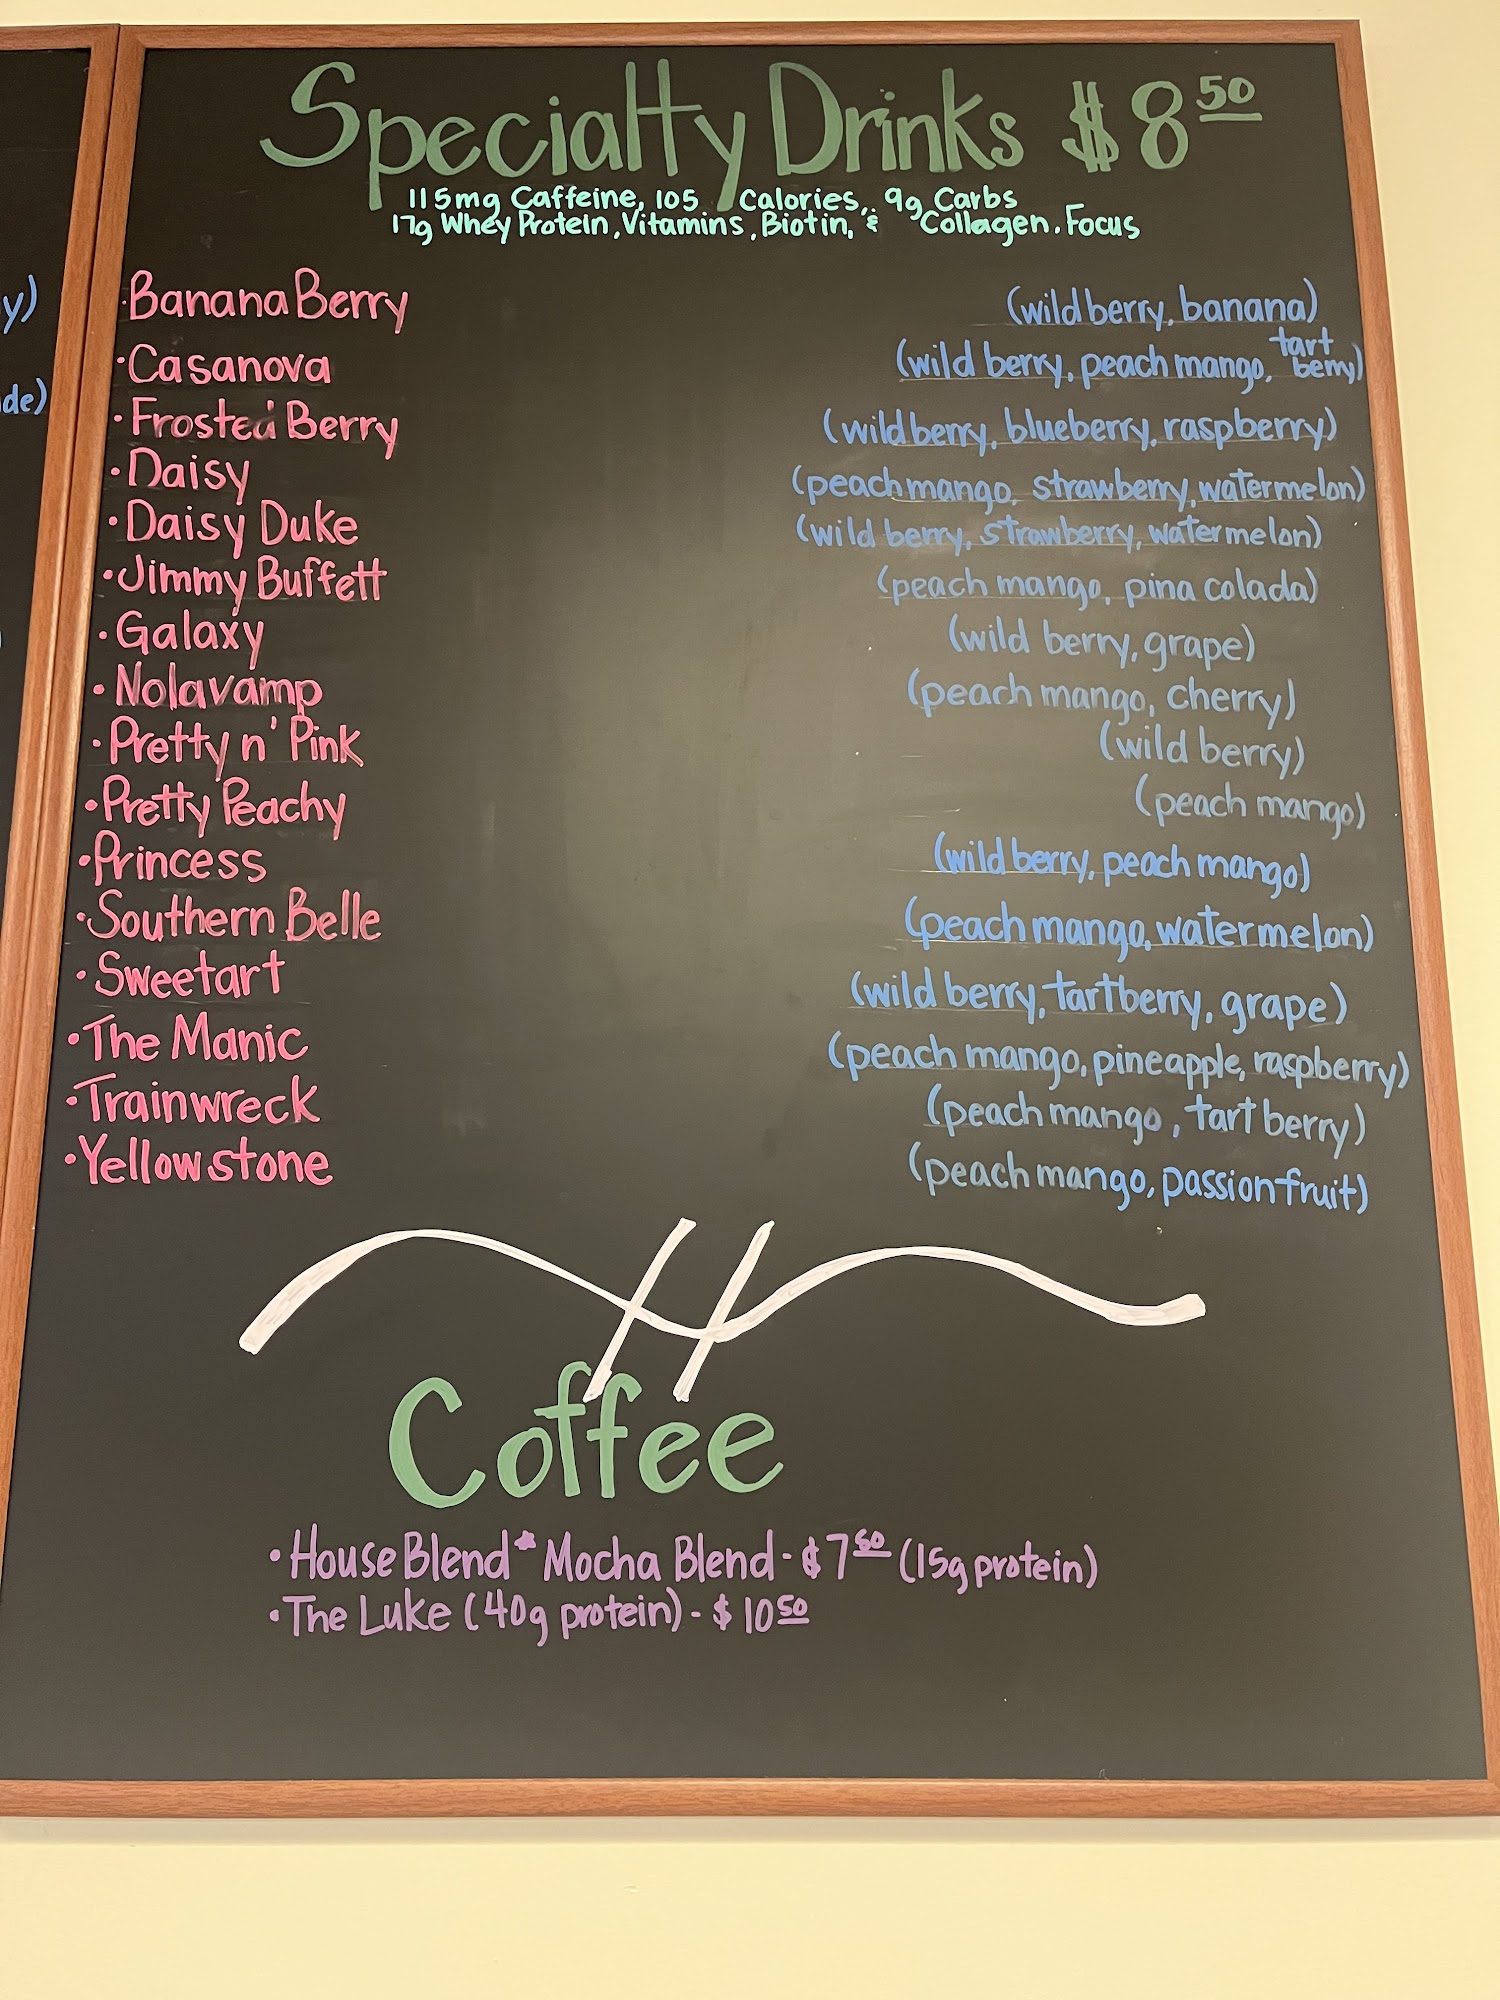 Specialty Drinks $8 50
115mg Caffeine, 105 Calories, 9g Carbs
17g Whey Protein, Vitamins, Biotin, & Collagen. Focus
·Banana Berry (wild berry, banana)
·Casanova (wild berry, peach mango, tart berry)
·Frosted Berry (wild berry, blueberry, raspberry)
·Daisy (peach mango, strawberry, watermelon)
·Daisy Duke (wild berry, strawberry, watermelon)
·Jimmy Buffett (peach mango, pina colada)
·Galaxy (wild berry, grape)
·Nolavamp (peach mango, cherry)
·Pretty n' Pink (wild berry)
·Pretty Peachy (peach mango)
·Princess (wild berry, peach mango)
·Southern Belle (peach mango, watermelon)
·Sweetart (wild berry, tart berry, grape)
·The Manic (peach mango, pineapple, raspberry)
·Trainwreck (peach mango, tart berry)
·Yellowstone (peach mango, passionfruit)
H
Coffee
·House Blend * Mocha Blend - $7 50 (15g protein)
·The Luke (40g protein) - $10 50